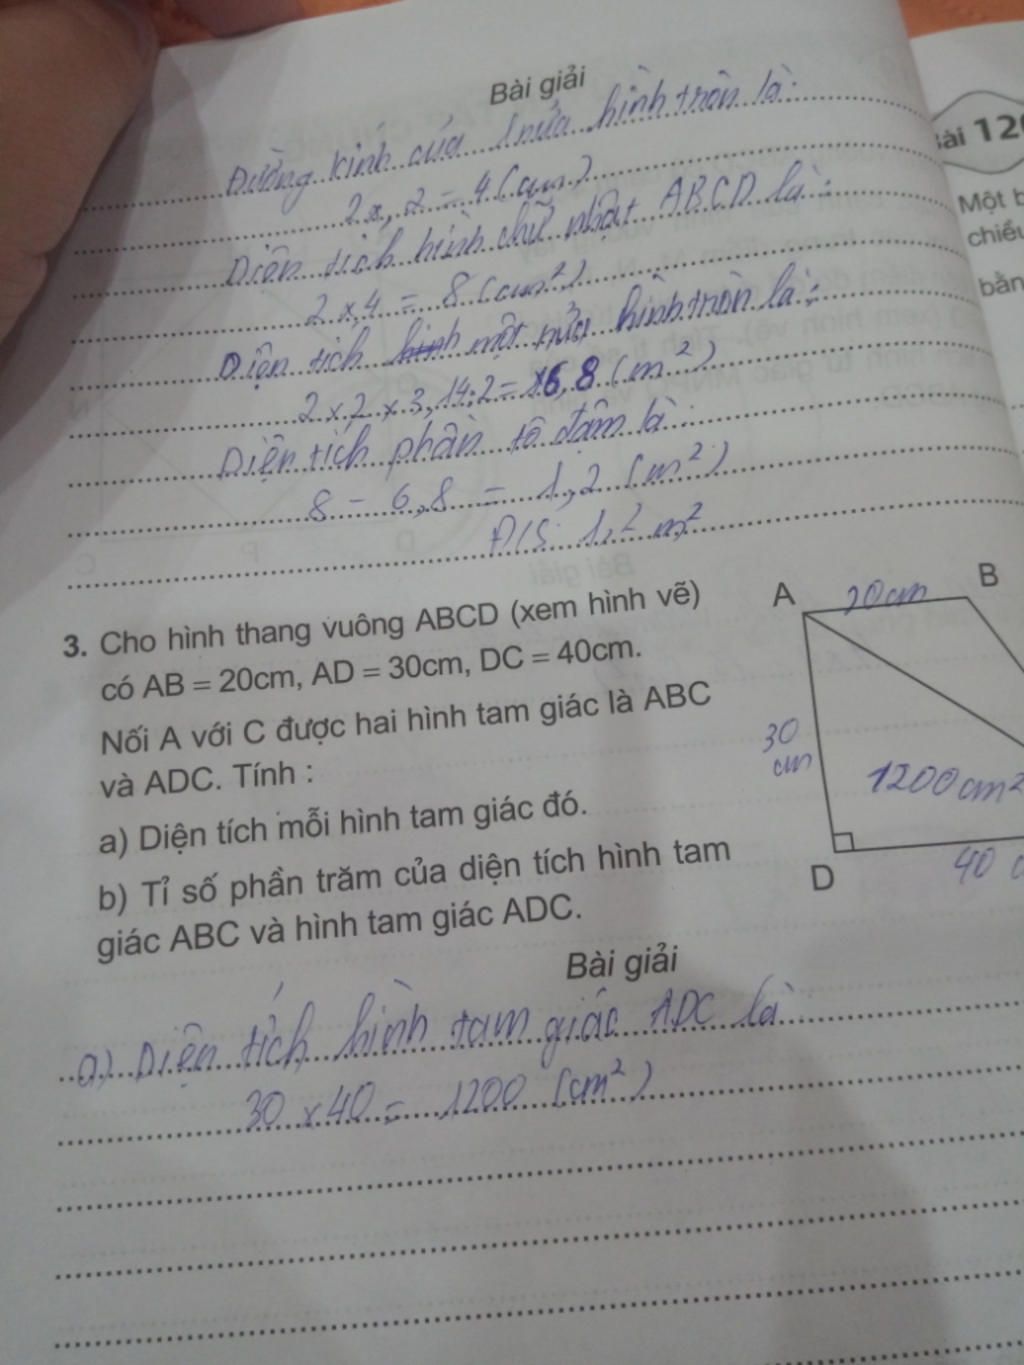 Bài giải
Đường kính của 1 nửa hình tròn là:
2 x 2 = 4 (cm)
Diện tích hình chữ nhật ABCD là:
2 x 4 = 8 (cm²)
Diện tích một nửa hình tròn là:
2 x 2 x 3,14 : 2 = 6,8 (m²)
Diện tích phần tô đậm là:
8 - 6,8 = 1,2 (m²)
Đ/S: 1,2 m²
3. Cho hình thang vuông ABCD (xem hình vẽ)
có AB = 20cm, AD = 30cm, DC = 40cm.
Nối A với C được hai hình tam giác là ABC
và ADC. Tính :
a) Diện tích mỗi hình tam giác đó.
b) Tỉ số phần trăm của diện tích hình tam
giác ABC và hình tam giác ADC.
A 20cm B
30
cm
1200cm²
D 40
Bài giải
a) Diện tích hình tam giác ADC là
30 x 40 = 1200 (cm²)
Một
bằn